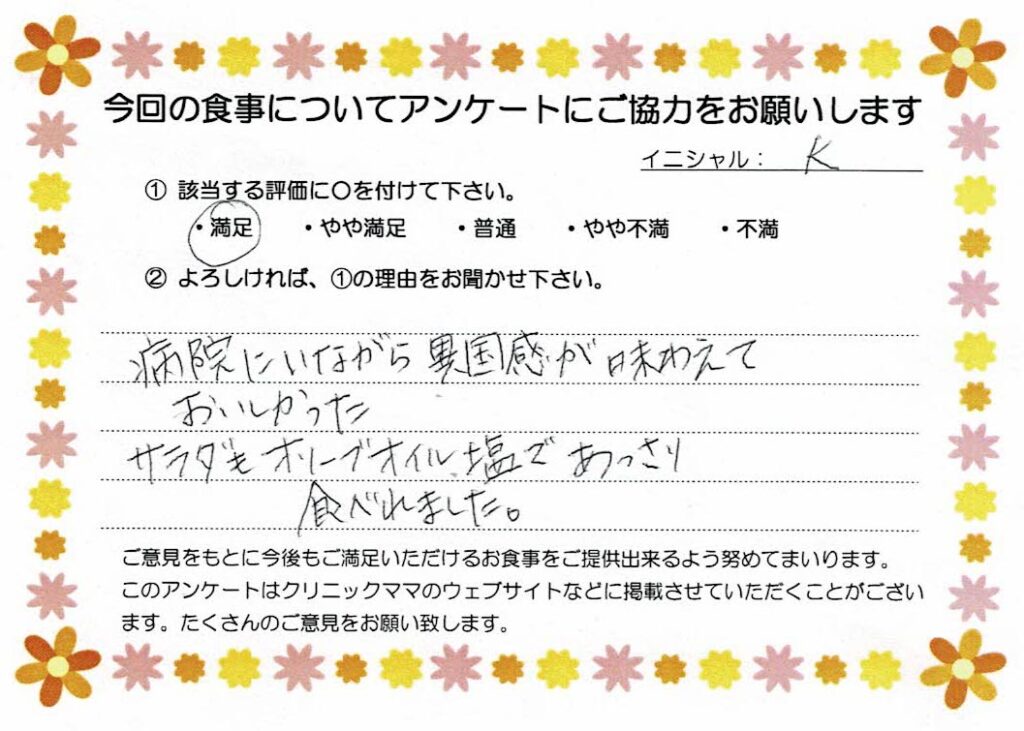 今回の食事についてアンケートにご協力をお願いします
イニシャル： K
① 該当する評価に〇を付けて下さい。
・満足 ・やや満足 ・普通 ・やや不満 ・不満
② よろしければ、①の理由をお聞かせ下さい。
病院にいながら異国感が味わえて
おいしかった
サラダもオリーブオイル、塩であっさり
食べれました。
ご意見をもとに今後もご満足いただけるお食事をご提供出来るよう努めてまいります。
このアンケートはクリニックママのウェブサイトなどに掲載させていただくことがござい
ます。たくさんのご意見をお願い致します。